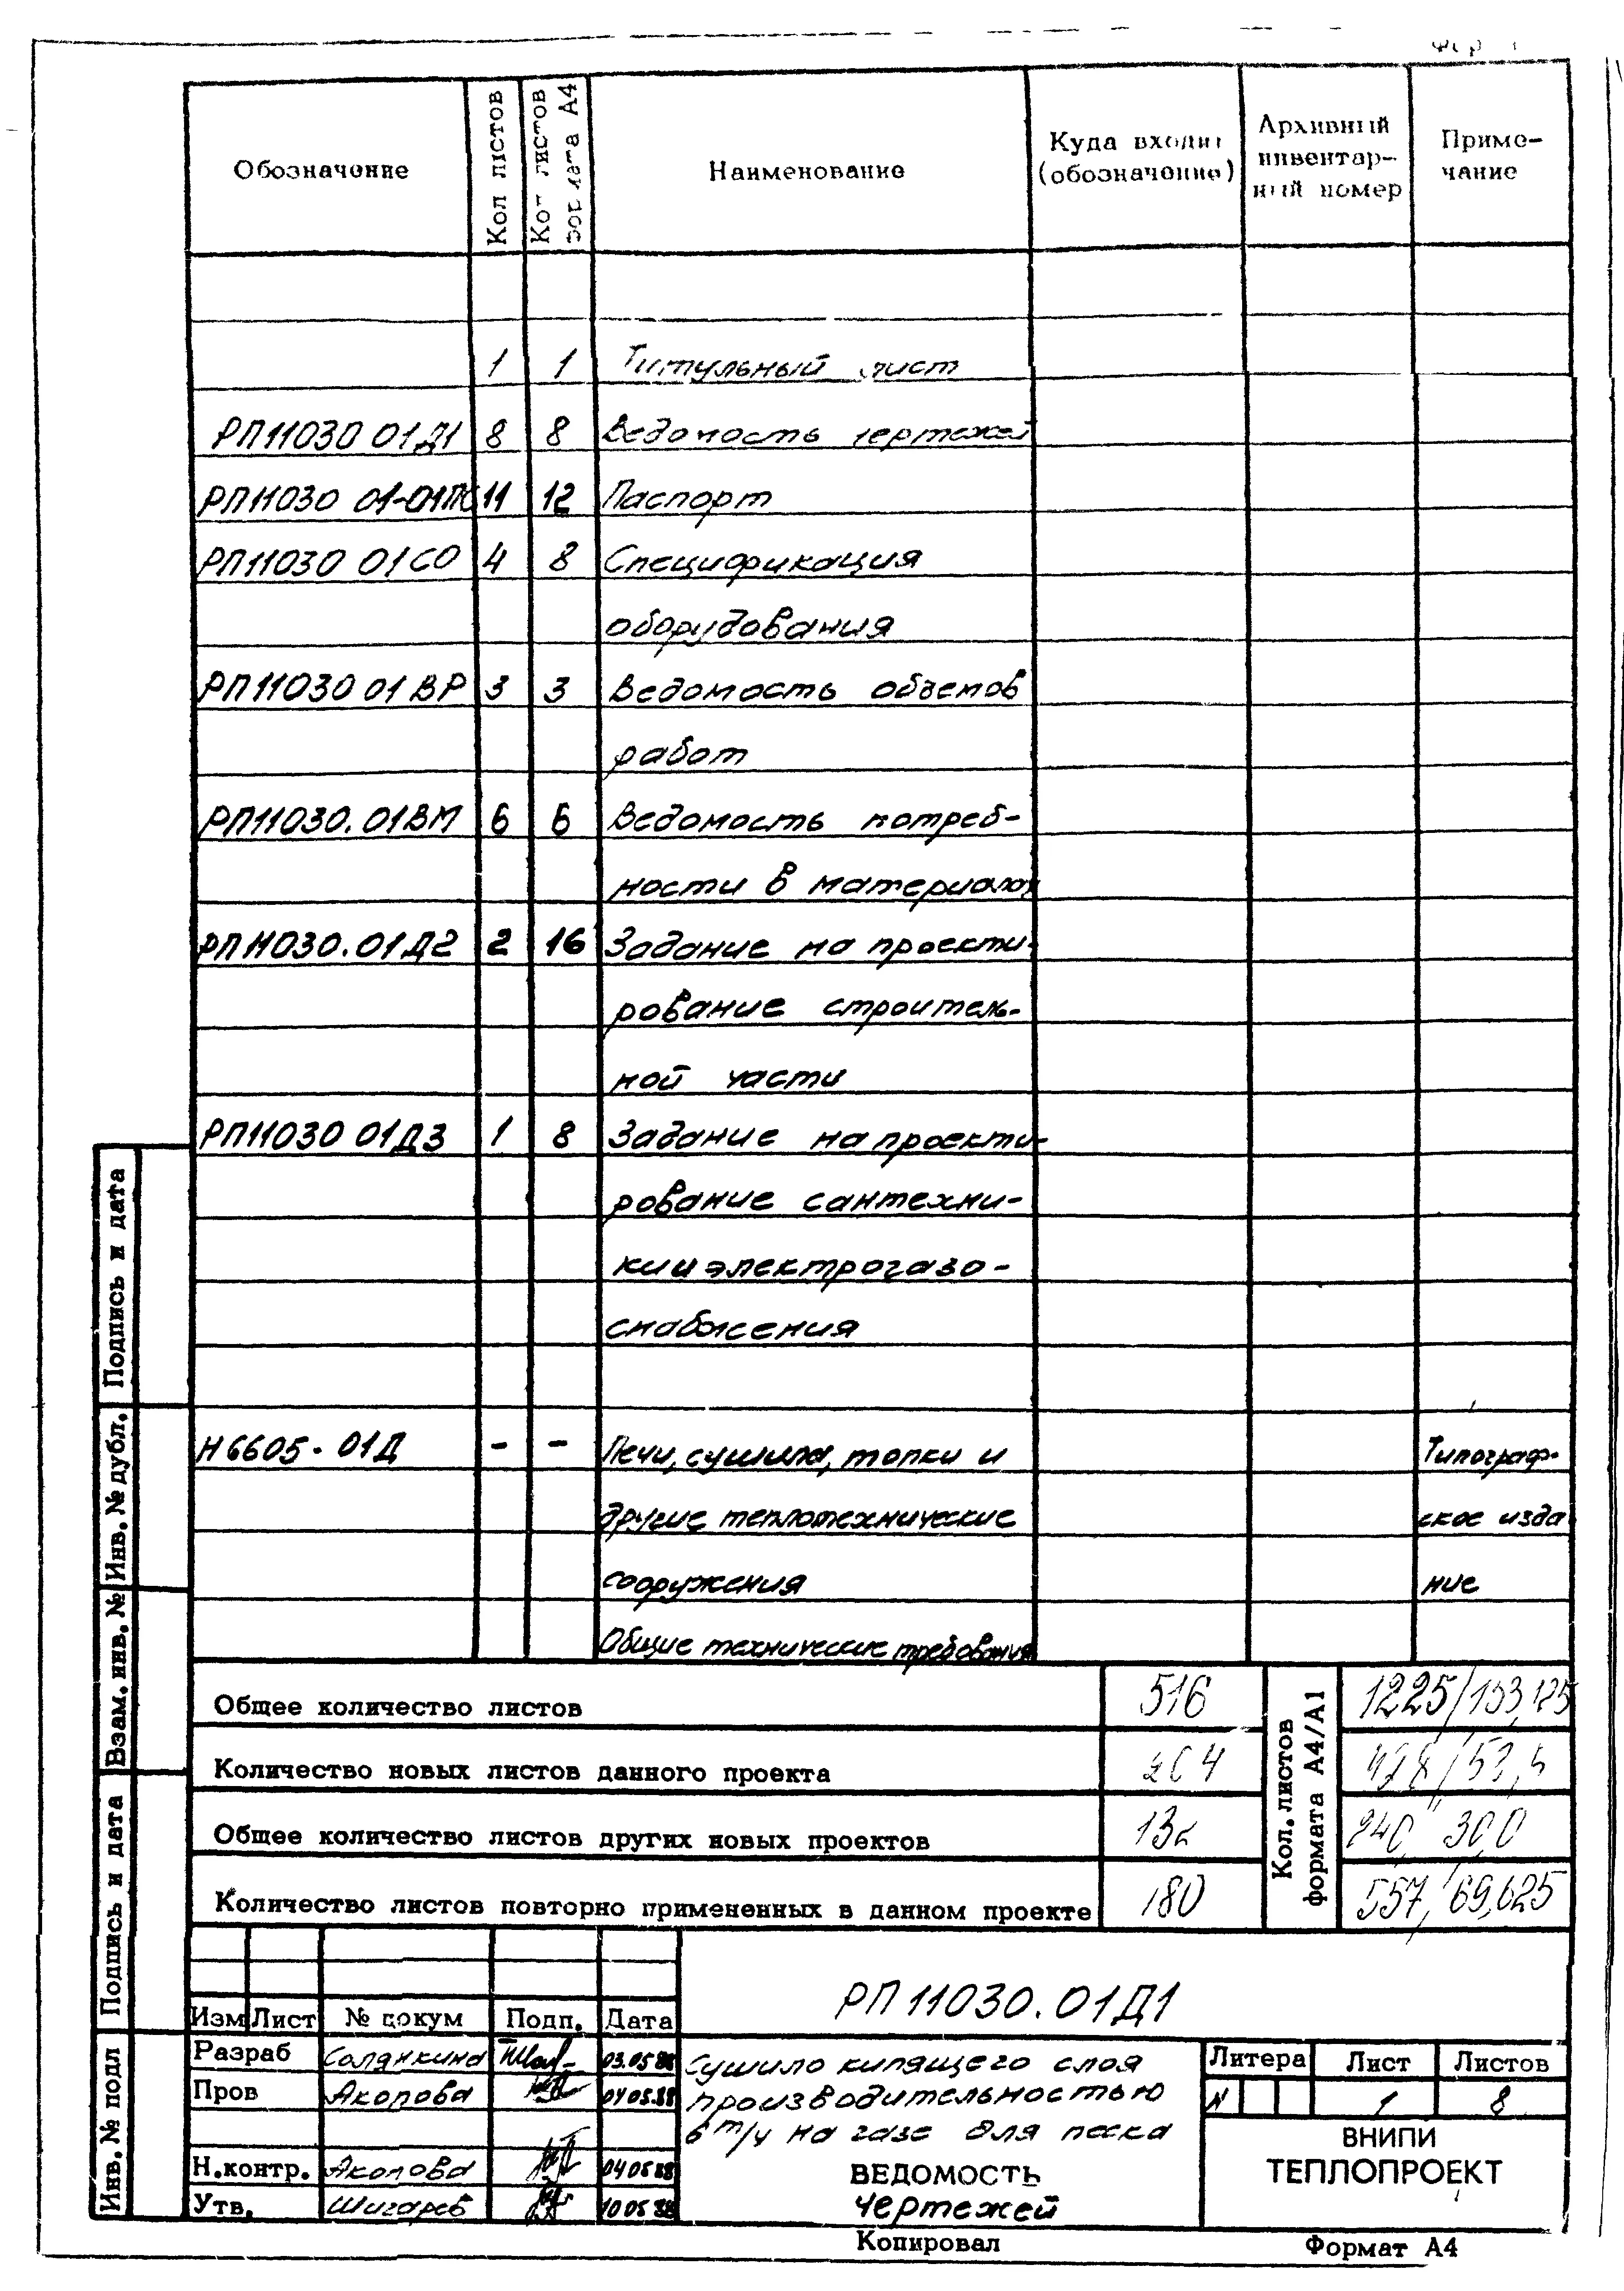 Обозначение
Кол листов
Кол листов формата А4
Наименование
Куда входит (обозначение)
Архивный инвентарный номер
Приме-
чание
1 1 Титульный лист
РП11030 01Д1 8 8 Ведомость чертежей
РП11030 01-01ПС 11 12 Паспорт
РП11030 01СО 4 8 Спецификация
оборудования
РП11030 01ВР 3 3 Ведомость объемов
работ
РП11030.01ВМ 6 6 Ведомость потреб-
ности в материалах
РП11030.01Д2 2 16 Задание на проекти-
рование строитель-
ной части
РП11030 01Д3 1 8 Задание на проекти-
рование сантехни-
ки и электрогазо-
снабжения
Н6605-01Д - - Печи, сушила, топки и Типограф-
другие теплотехнические ское изда
сооружения ние
Общие технические требования
Общее количество листов 516 1225/153,125
Количество новых листов данного проекта 204 428/53,5
Общее количество листов других новых проектов 132 240 30,0
Количество листов повторно примененных в данном проекте 180 557 69,625
Кол. листов
формата А4/А1
Подпись и дата
Инв. № дубл.
Взам. инв. №
Подпись и дата
Инв. № подл
РП 11030.01Д1
Изм Лист № докум Подп. Дата
Разраб Солянкина 03.05.88
Пров Акопова 04 05.88
Н.контр. Акопова 04 05 88
Утв. Шигарев 10 05 88
Сушило кипящего слоя
производительностью
6 т/ч на газе для песка
ВЕДОМОСТЬ
чертежей
Литера Лист Листов
И 1 8
ВНИПИ
ТЕПЛОПРОЕКТ
Копировал Формат А4